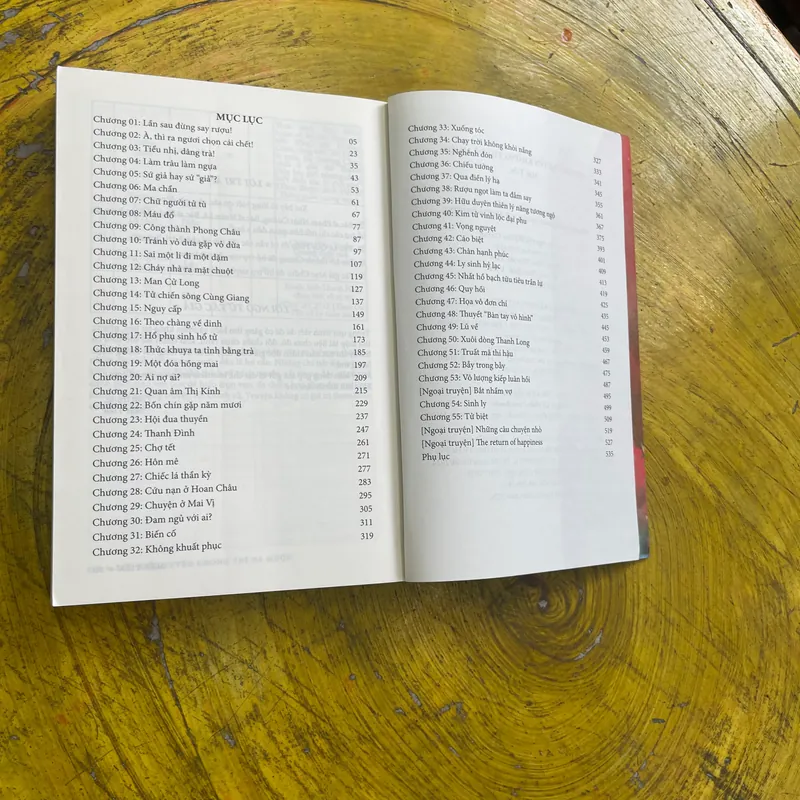 MỤC LỤC
Chương 01: Lần sau đừng say rượu! 05
Chương 02: À, thì ra ngươi chọn cái chết! 23
Chương 03: Tiểu nhị, dâng trà! 35
Chương 04: Làm trâu làm ngựa 43
Chương 05: Sứ giả hay sứ "giả"? 53
Chương 06: Ma chẩn 61
Chương 07: Chữ người tử tù 67
Chương 08: Máu đổ 77
Chương 09: Công thành Phong Châu 87
Chương 10: Tránh vỏ dưa gặp vỏ dừa 97
Chương 11: Sai một li đi một dặm 107
Chương 12: Cháy nhà ra mặt chuột 119
Chương 13: Man Cử Long 127
Chương 14: Tử chiến sông Cùng Giang 137
Chương 15: Nguy cấp 149
Chương 16: Theo chàng về dinh 161
Chương 17: Hổ phụ sinh hổ tử 173
Chương 18: Thức khuya ta tỉnh bằng trà 185
Chương 19: Một đóa hồng mai 197
Chương 20: Ai nợ ai? 209
Chương 21: Quan âm Thị Kính 215
Chương 22: Bốn chín gặp năm mươi 229
Chương 23: Hội đua thuyền 237
Chương 24: Thanh Đình 247
Chương 25: Chợ tết 261
Chương 26: Hôn mê 271
Chương 27: Chiếc lá thần kỳ 277
Chương 28: Cứu nạn ở Hoan Châu 283
Chương 29: Chuyện ở Mai Vị 295
Chương 30: Đam ngủ với ai? 305
Chương 31: Biến cố 311
Chương 32: Không khuất phục 319
Chương 33: Xuống tóc 327
Chương 34: Chạy trời không khỏi nắng 333
Chương 35: Nghênh đón 341
Chương 36: Chiêu tướng 345
Chương 37: Qua điển lỵ hạ 355
Chương 38: Rượu ngọt làm ta đắm say 361
Chương 39: Hữu duyên thiên lý năng tương ngộ 367
Chương 40: Kim tử vinh lộc đại phu 375
Chương 41: Vọng nguyệt 395
Chương 42: Cáo biệt 401
Chương 43: Chăn hạnh phúc 409
Chương 44: Ly sinh hỷ lạc 413
Chương 45: Nhất hồ bạch tửu tiêu trần lụ 419
Chương 46: Quy hồi 425
Chương 47: Họa vô đơn chí 435
Chương 48: Thuyết "Bàn tay vô hình" 445
Chương 49: Lũ về 453
Chương 50: Xuôi dòng Thanh Long 459
Chương 51: Truất mã thí hậu 467
Chương 52: Bẫy trong bẫy 475
Chương 53: Vô lượng kiếp luân hồi 487
[Ngoại truyện] Bắt nhầm vợ 495
Chương 54: Sinh ly 499
Chương 55: Tử biệt 509
[Ngoại truyện] Những câu chuyện nhỏ 519
[Ngoại truyện] The return of happiness 527
Phụ lục 535